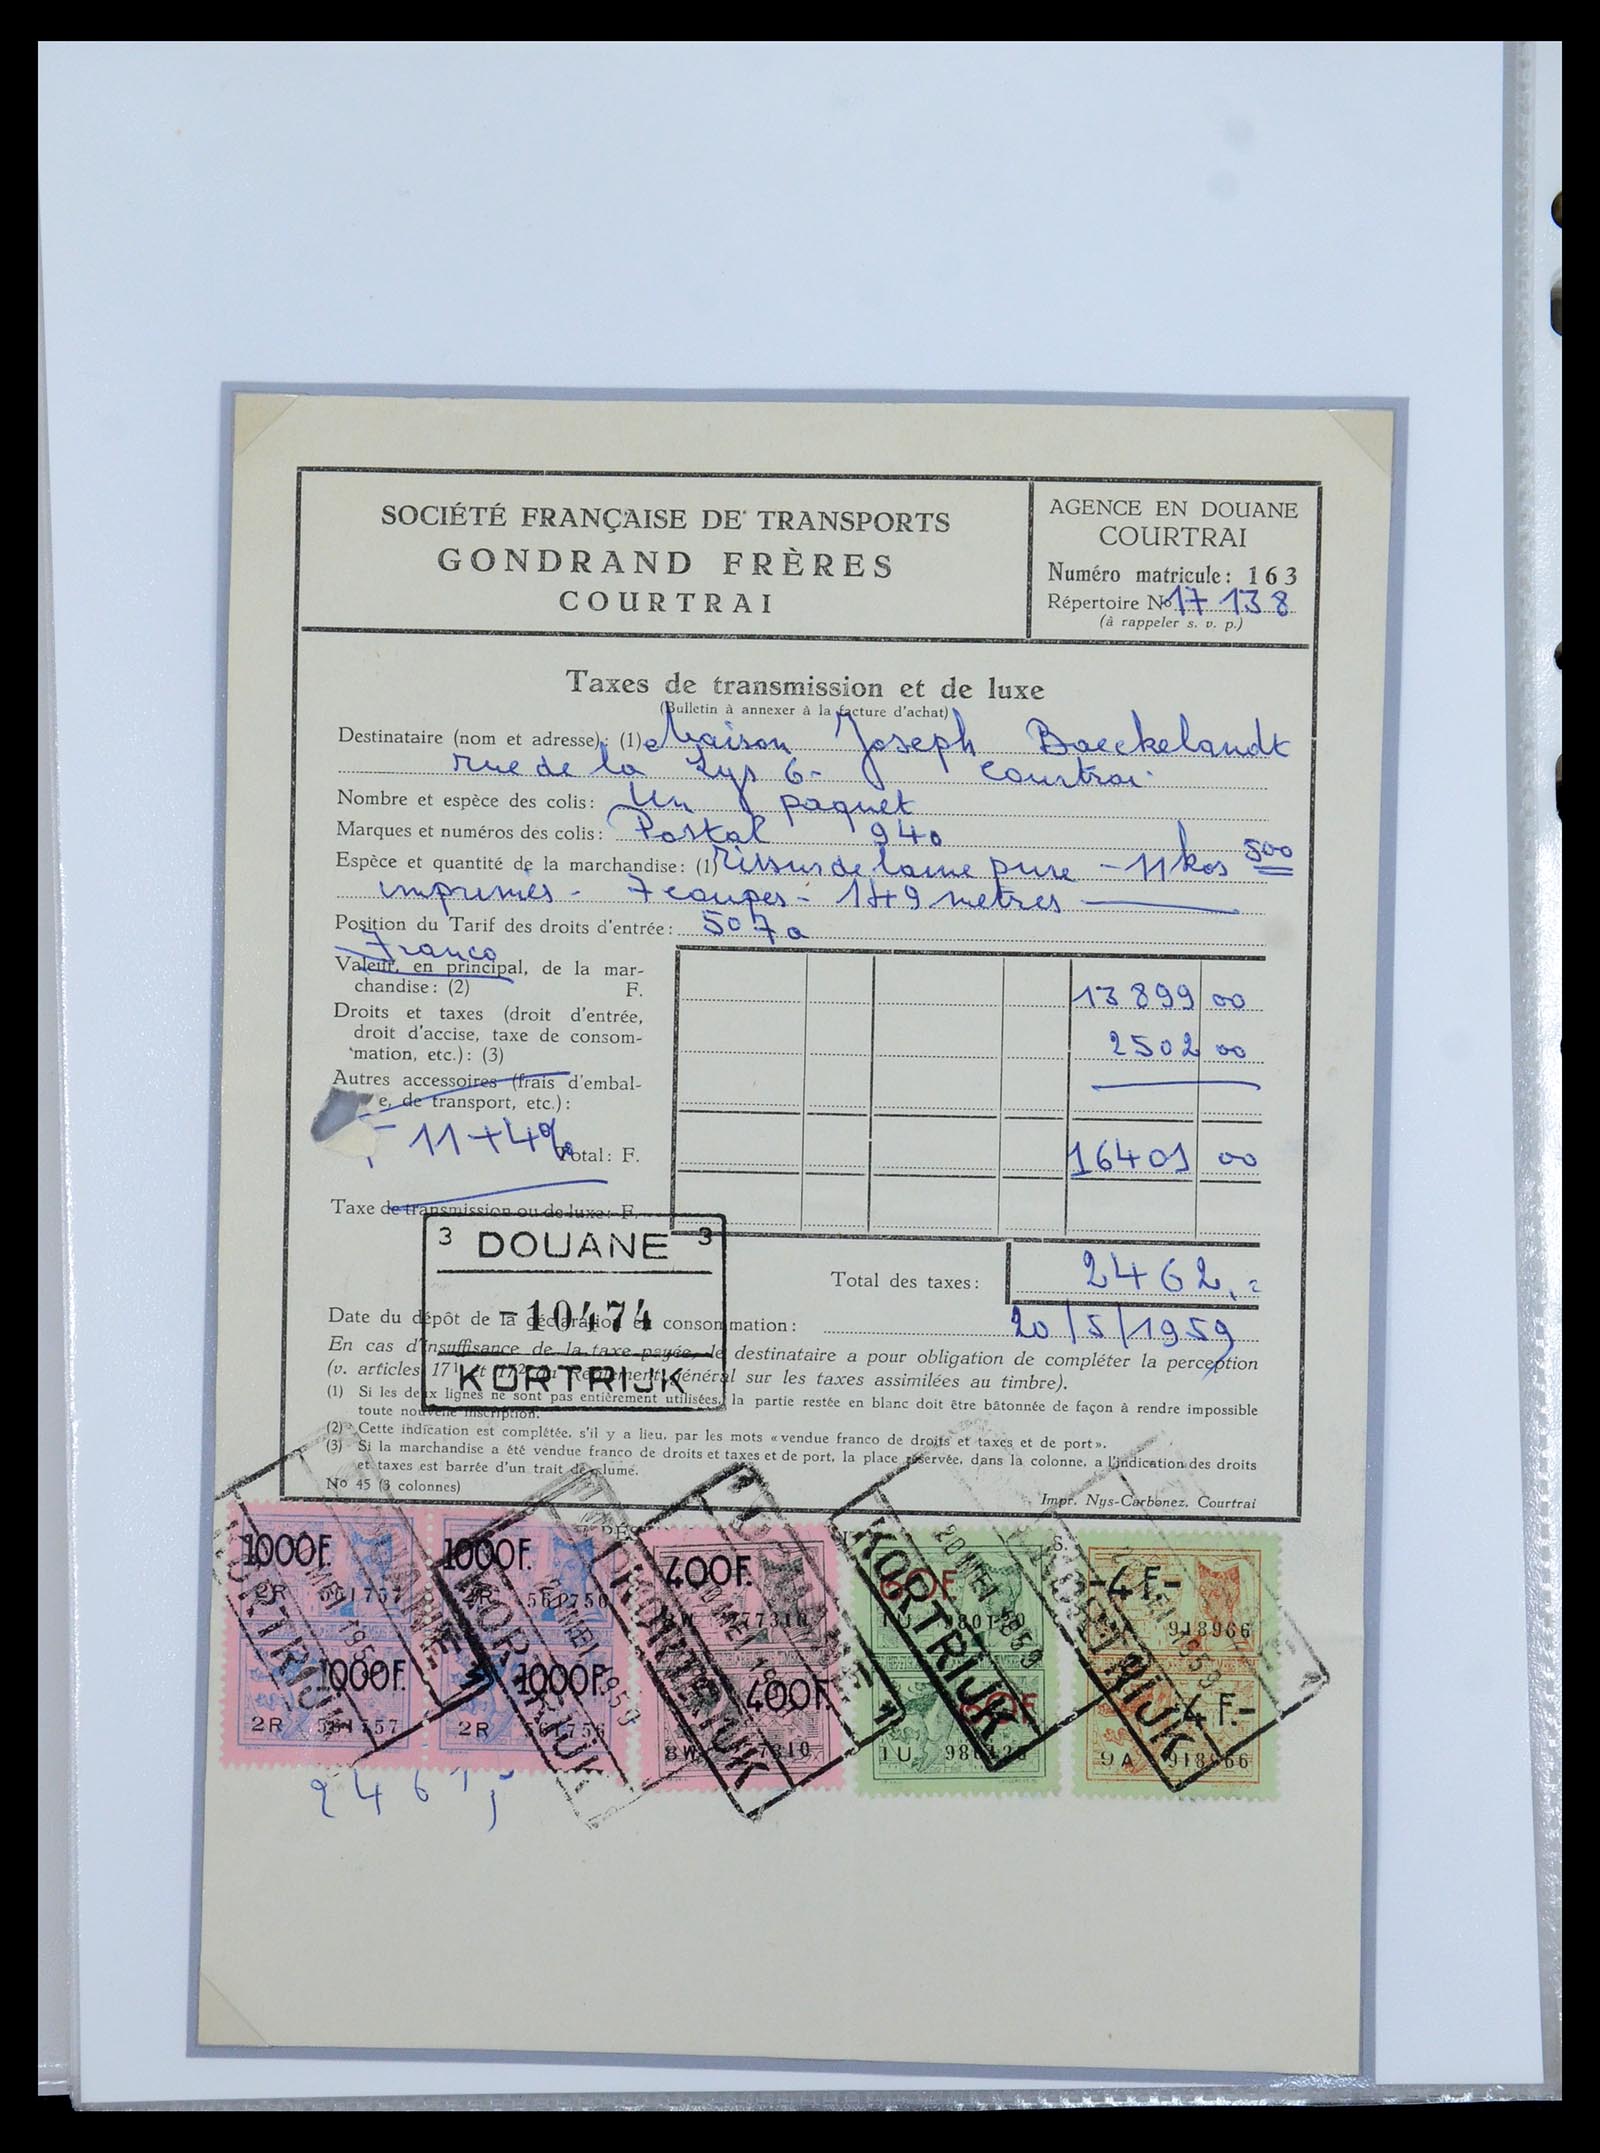 SOCIÉTÉ FRANÇAISE DE TRANSPORTS
GONDRAND FRÈRES
COURTRAI
AGENCE EN DOUANE
COURTRAI
Numéro matricule: 163
Répertoire No 17 138
(à rappeler s. v. p.)
Taxes de transmission et de luxe
(Bulletin à annexer à la facture d'achat)
Destinataire (nom et adresse): (1) Maison Joseph Baeckelandt
rue de la Lys 6 - Courtrai
Nombre et espèce des colis: Un paquet
Marques et numéros des colis: Postal 940
Espèce et quantité de la marchandise: (1) Tissus de laine pure - 11 kos 500
imprimés - 7 coupes - 149 metres
Position du Tarif des droits d'entrée: 507 a
Franco
Valeur, en principal, de la mar-
chandise: (2) F. 13 899 00
Droits et taxes (droit d'entrée,
droit d'accise, taxe de consom-
mation, etc.): (3) 2502 00
Autres accessoires (frais d'embal-
e, de transport, etc.):
11 + 4%
Total: F. 16401 00
Taxe de transmission ou de luxe: F.
3 DOUANE 3
Total des taxes: 2462,-
-10474
Date du dépôt de la déclaration en consommation: 20/5/1959
KORTRIJK
En cas d'insuffisance de la taxe payée, le destinataire a pour obligation de compléter la perception
(v. articles 171 et 172 du Règlement général sur les taxes assimilées au timbre).
(1) Si les deux lignes ne sont pas entièrement utilisées, la partie restée en blanc doit être bâtonnée de façon à rendre impossible
toute nouvelle inscription.
(2) Cette indication est complétée, s'il y a lieu, par les mots «vendue franco de droits et taxes et de port».
(3) Si la marchandise a été vendue franco de droits et taxes et de port, la place réservée, dans la colonne, a l'indication des droits
et taxes est barrée d'un trait de plume.
No 45 (3 colonnes)
Impr. Nys-Carbonez, Courtrai
1000F. 1000F. 400F. 60F -4 F.-
2R 561757 2R 561756 8W 777310 1U 980120 9A 918966
1000F. 1000F. 400F. 60F -4 F.-
2R 561757 2R 561756 8W 1U 9A 918966
KORTRIJK KORTRIJK KORTRIJK KORTRIJK KORTRIJK
20 MEI 1959